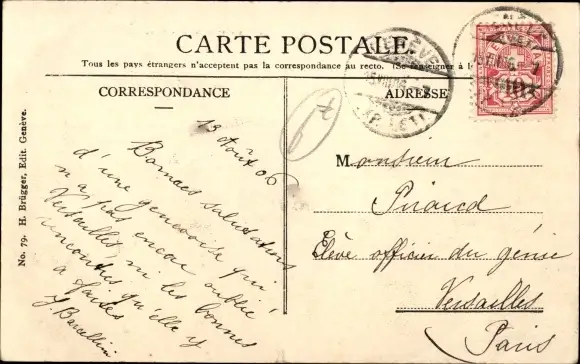 CARTE POSTALE.
Tous les pays étrangers n'acceptent pas la correspondance au recto. (Se renseigner à l
CORRESPONDANCE
ADRESSE
No. 79. H. Brügger, Edit. Genève.
13 Août 06
Bonnes salutations
d'une genevoise qui
n'a pas encore oublié
Versailles, ni les bonnes
rencontres qu'elle y
a faites
Monsieur
Élève officier du génie
Versailles
Paris